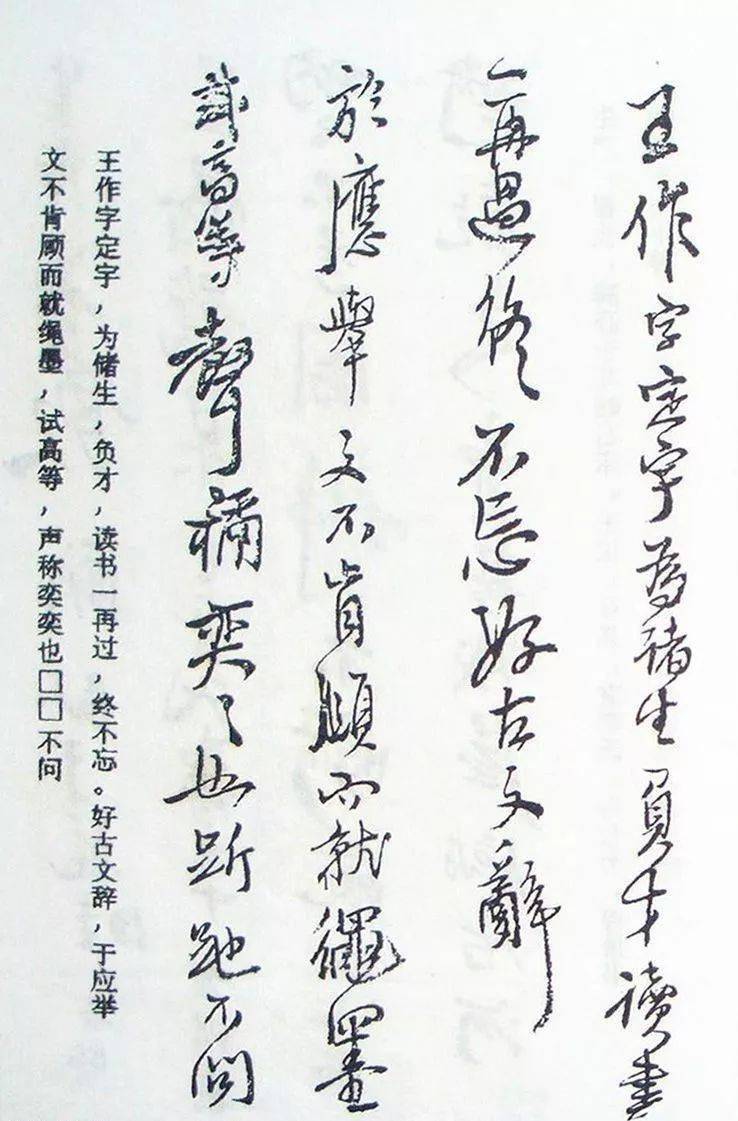 王作字定宇為褚生負才讀書
一再過終不忘好古文辭
於應舉文不肯顧而就繩墨
試高等聲稱奕〻也跅跎不問
王作字定宇，为储生，负才，读书一再过，终不忘。好古文辞，于应举
文不肯顾而就绳墨，试高等，声称奕奕也□□不问